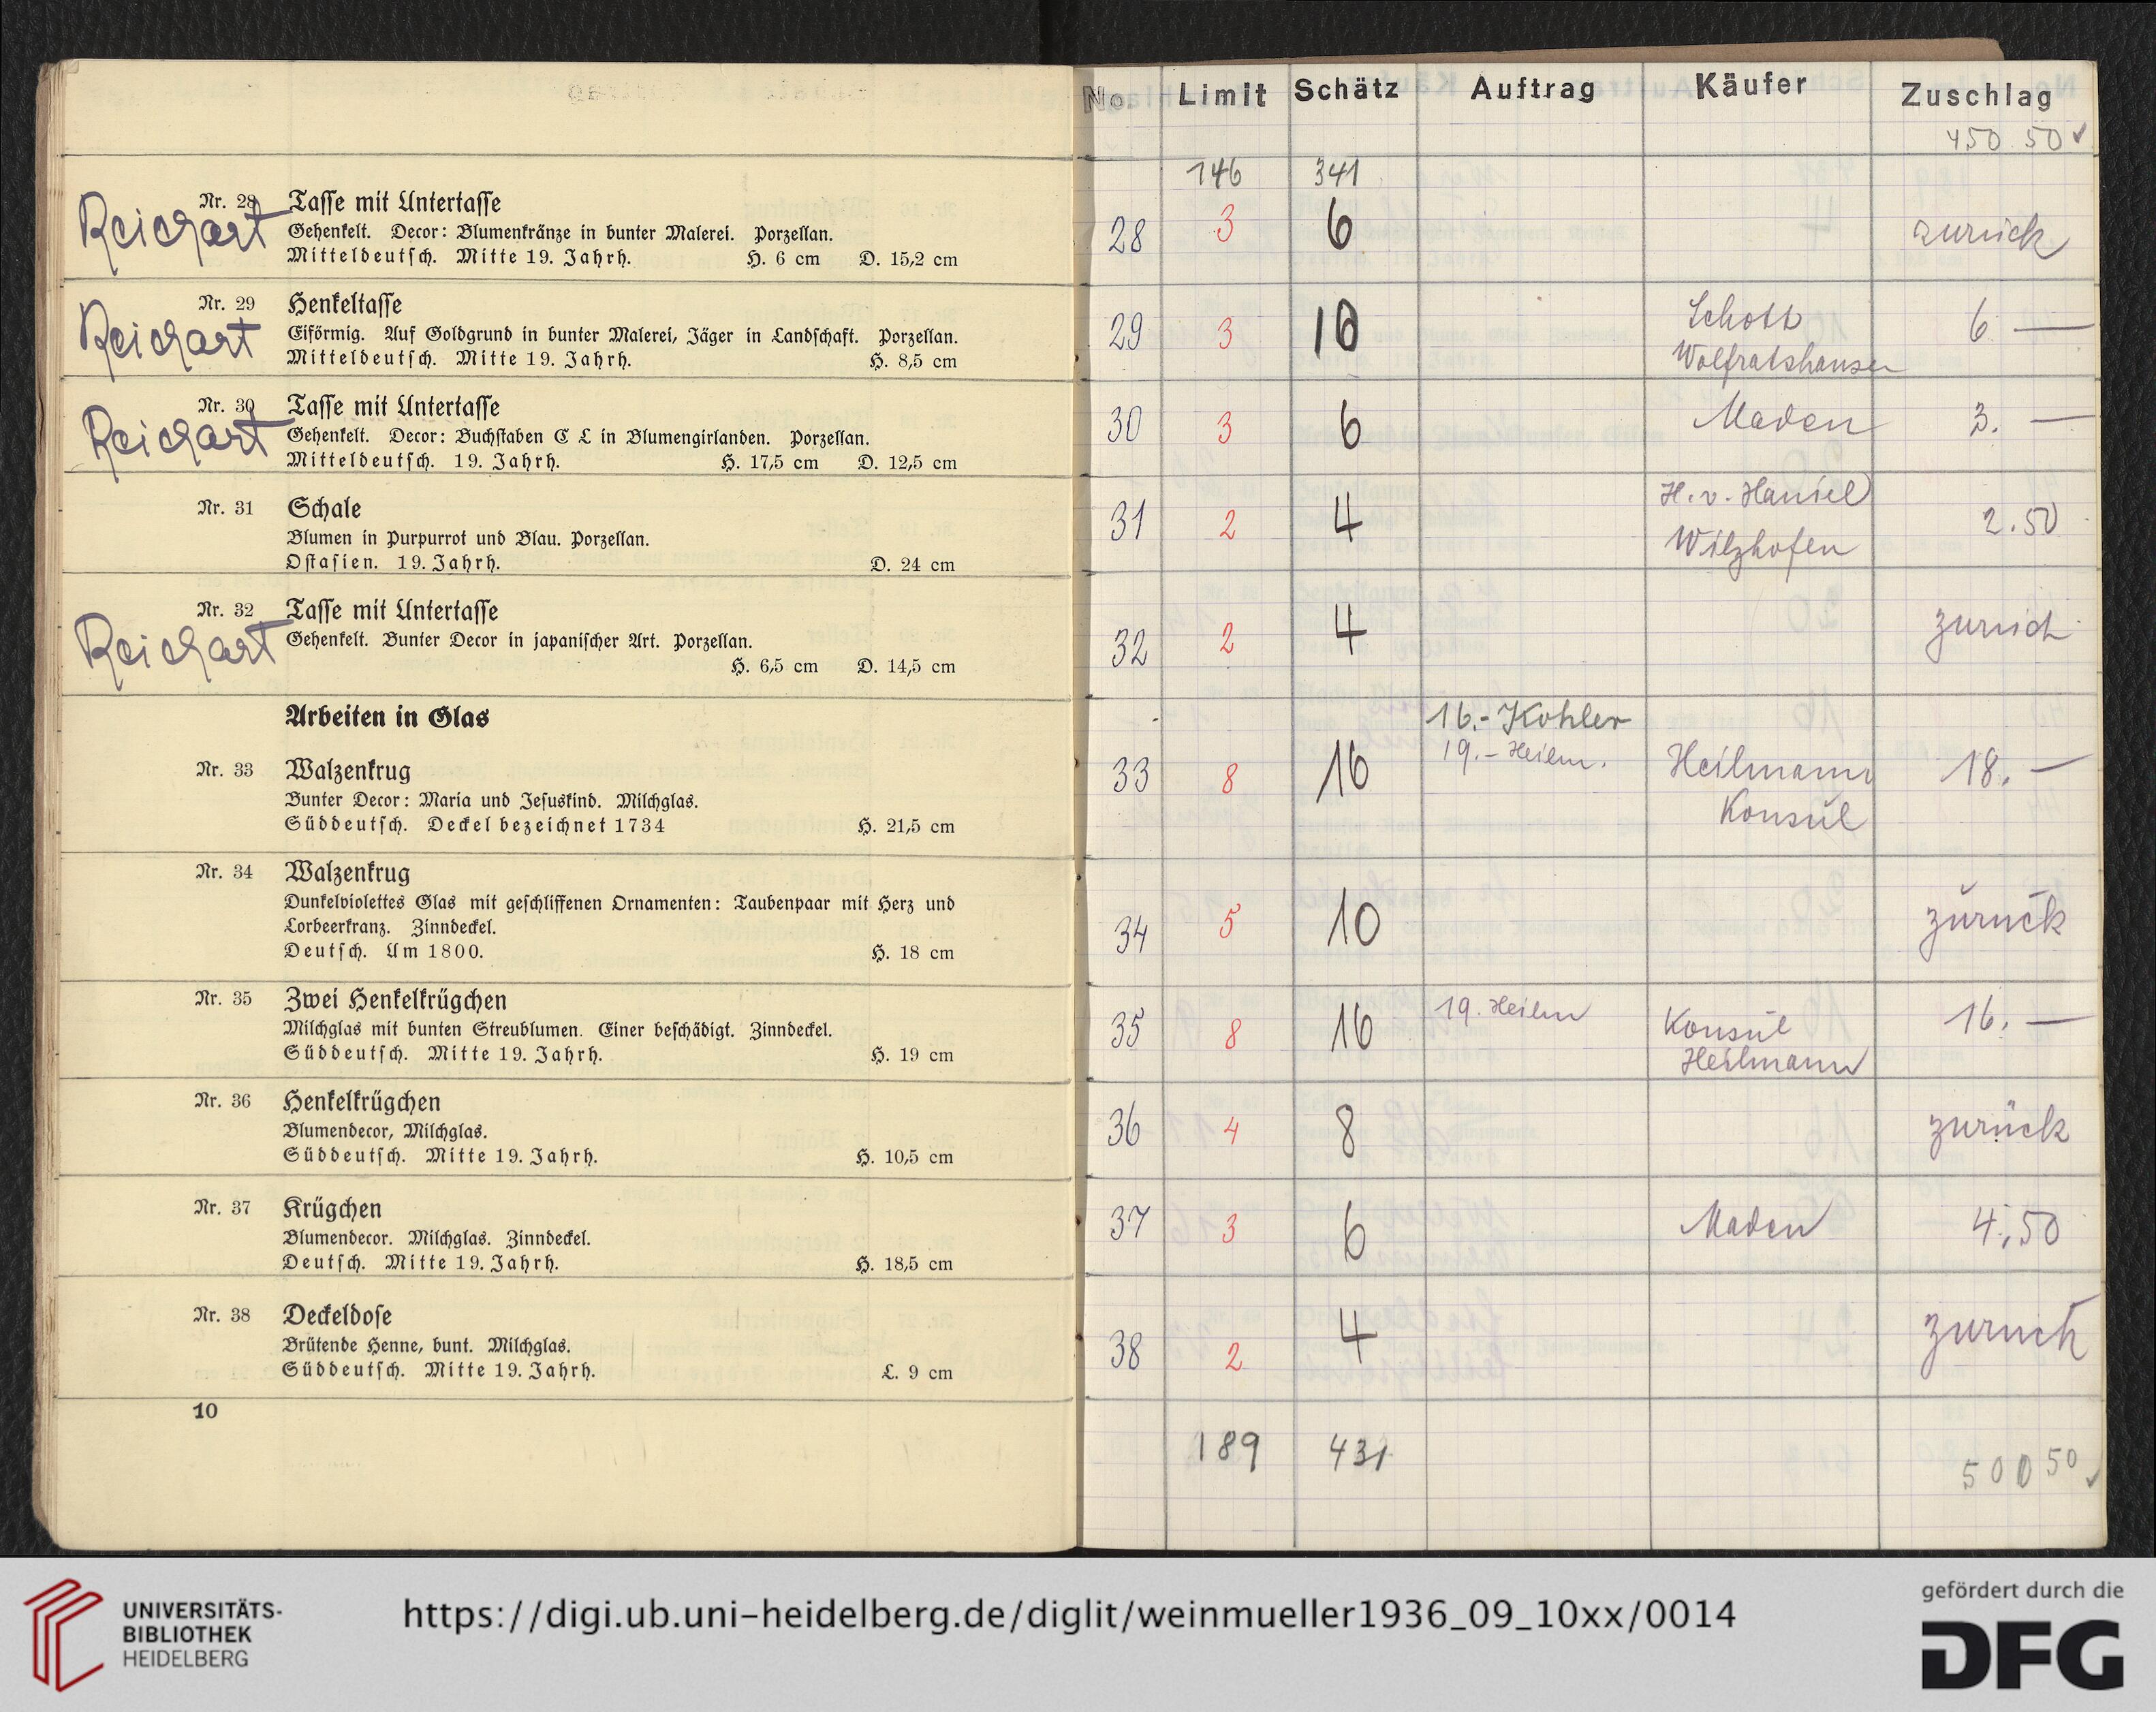 Nr. 28 Tasse mit Untertasse
Reichart
Gehenkelt. Decor: Blumenkränze in bunter Malerei. Porzellan.
Mitteldeutsch. Mitte 19. Jahrh. H. 6 cm D. 15,2 cm
Nr. 29 Henkeltasse
Reichart
Eiförmig. Auf Goldgrund in bunter Malerei, Jäger in Landschaft. Porzellan.
Mitteldeutsch. Mitte 19. Jahrh. H. 8,5 cm
Nr. 30 Tasse mit Untertasse
Reichart
Gehenkelt. Decor: Buchstaben C L in Blumengirlanden. Porzellan.
Mitteldeutsch. 19. Jahrh. H. 17,5 cm D. 12,5 cm
Nr. 31 Schale
Blumen in Purpurrot und Blau. Porzellan.
Ostasien. 19. Jahrh. D. 24 cm
Nr. 32 Tasse mit Untertasse
Reichart
Gehenkelt. Bunter Decor in japanischer Art. Porzellan.
H. 6,5 cm D. 14,5 cm
Arbeiten in Glas
Nr. 33 Walzenkrug
Bunter Decor: Maria und Jesuskind. Milchglas.
Süddeutsch. Deckel bezeichnet 1734 H. 21,5 cm
Nr. 34 Walzenkrug
Dunkelviolettes Glas mit geschliffenen Ornamenten: Taubenpaar mit Herz und
Lorbeerkranz. Zinndeckel.
Deutsch. Um 1800. H. 18 cm
Nr. 35 Zwei Henkelkrügchen
Milchglas mit bunten Streublumen. Einer beschädigt. Zinndeckel.
Süddeutsch. Mitte 19. Jahrh. H. 19 cm
Nr. 36 Henkelkrügchen
Blumendecor, Milchglas.
Süddeutsch. Mitte 19. Jahrh. H. 10,5 cm
Nr. 37 Krügchen
Blumendecor. Milchglas. Zinndeckel.
Deutsch. Mitte 19. Jahrh. H. 18,5 cm
Nr. 38 Deckeldose
Brütende Henne, bunt. Milchglas.
Süddeutsch. Mitte 19. Jahrh. L. 9 cm
10
No. Limit Schätz Auftrag Käufer Zuschlag
450 50 ✓
146 341
28 3 6 zurück
29 3 10 Schott 6 —
Wolfratshausen
30 3 6 Maden 3. —
31 2 4 H. v. Haniel 2.50
Wilzhofen
32 2 4 zurück
16.- Kohler
19.- Heilm.
33 8 16 Heilmann 18. —
Konsul
34 5 10 zurück
35 8 16 19. Heilm Konsul 16. —
Heilmann
36 4 8 zurück
37 3 6 Maden 4.50
38 2 4 zurück
189 431 500 50 ✓
UNIVERSITÄTS-
BIBLIOTHEK
HEIDELBERG
https://digi.ub.uni-heidelberg.de/diglit/weinmueller1936_09_10xx/0014
gefördert durch die
DFG